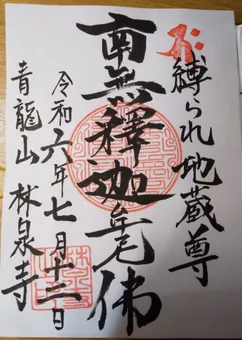 縛られ地蔵尊
南無釋迦牟尼佛
令和六年七月十三日
青龍山 林泉寺